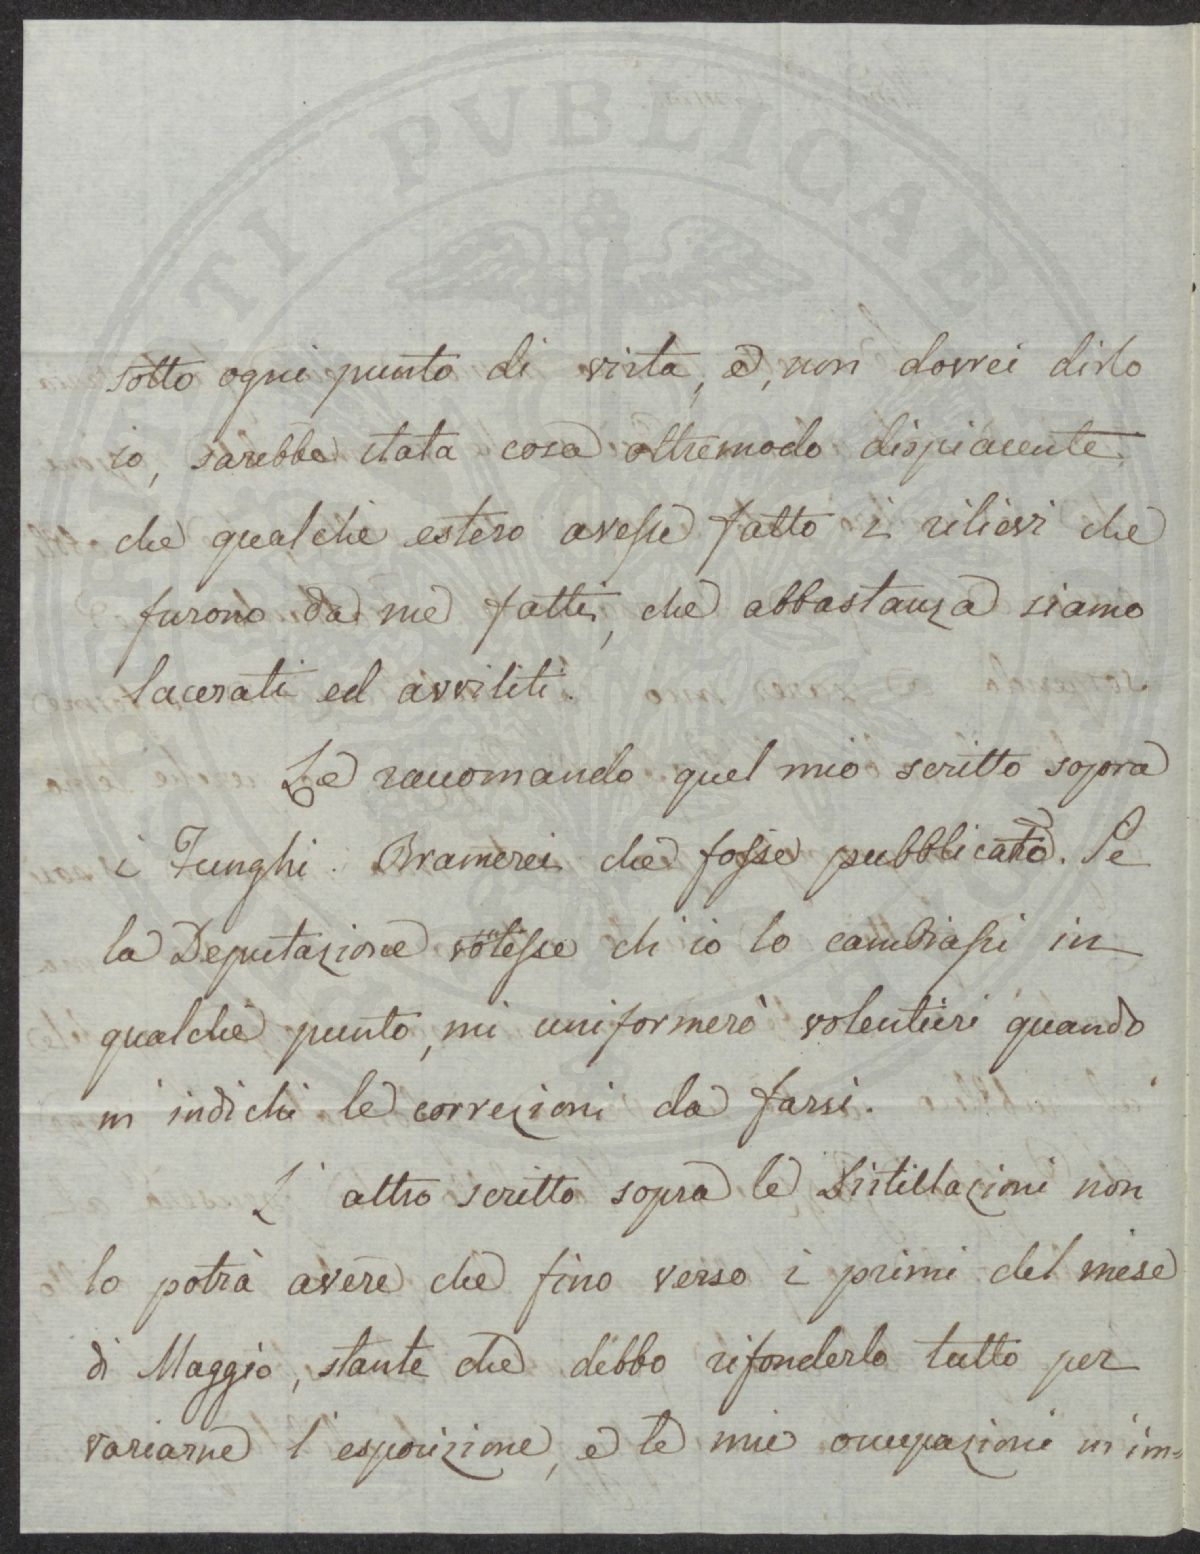 sotto ogni punto di vista, e, non dovrei dirlo
io, sarebbe stata cosa oltremodo dispiacente
che qualche estero avesse fatto i rilievi che
furono da me fatti, che abbastanza siamo
lacerati ed avviliti.
Le raccomando quel mio scritto sopra
i Funghi Bramerei che fosse pubblicato. Se
la Deputazione volesse ch'io lo cambiassi in
qualche punto, mi uniformerò volentieri quando
m'indichi le correzioni da farsi.
L'altro scritto sopra le Distillazioni non
lo potrà avere che fino verso i primi del mese
di Maggio, stante che debbo rifonderlo tutto per
variarne l'esposizione, e le mie occupazioni m'im=